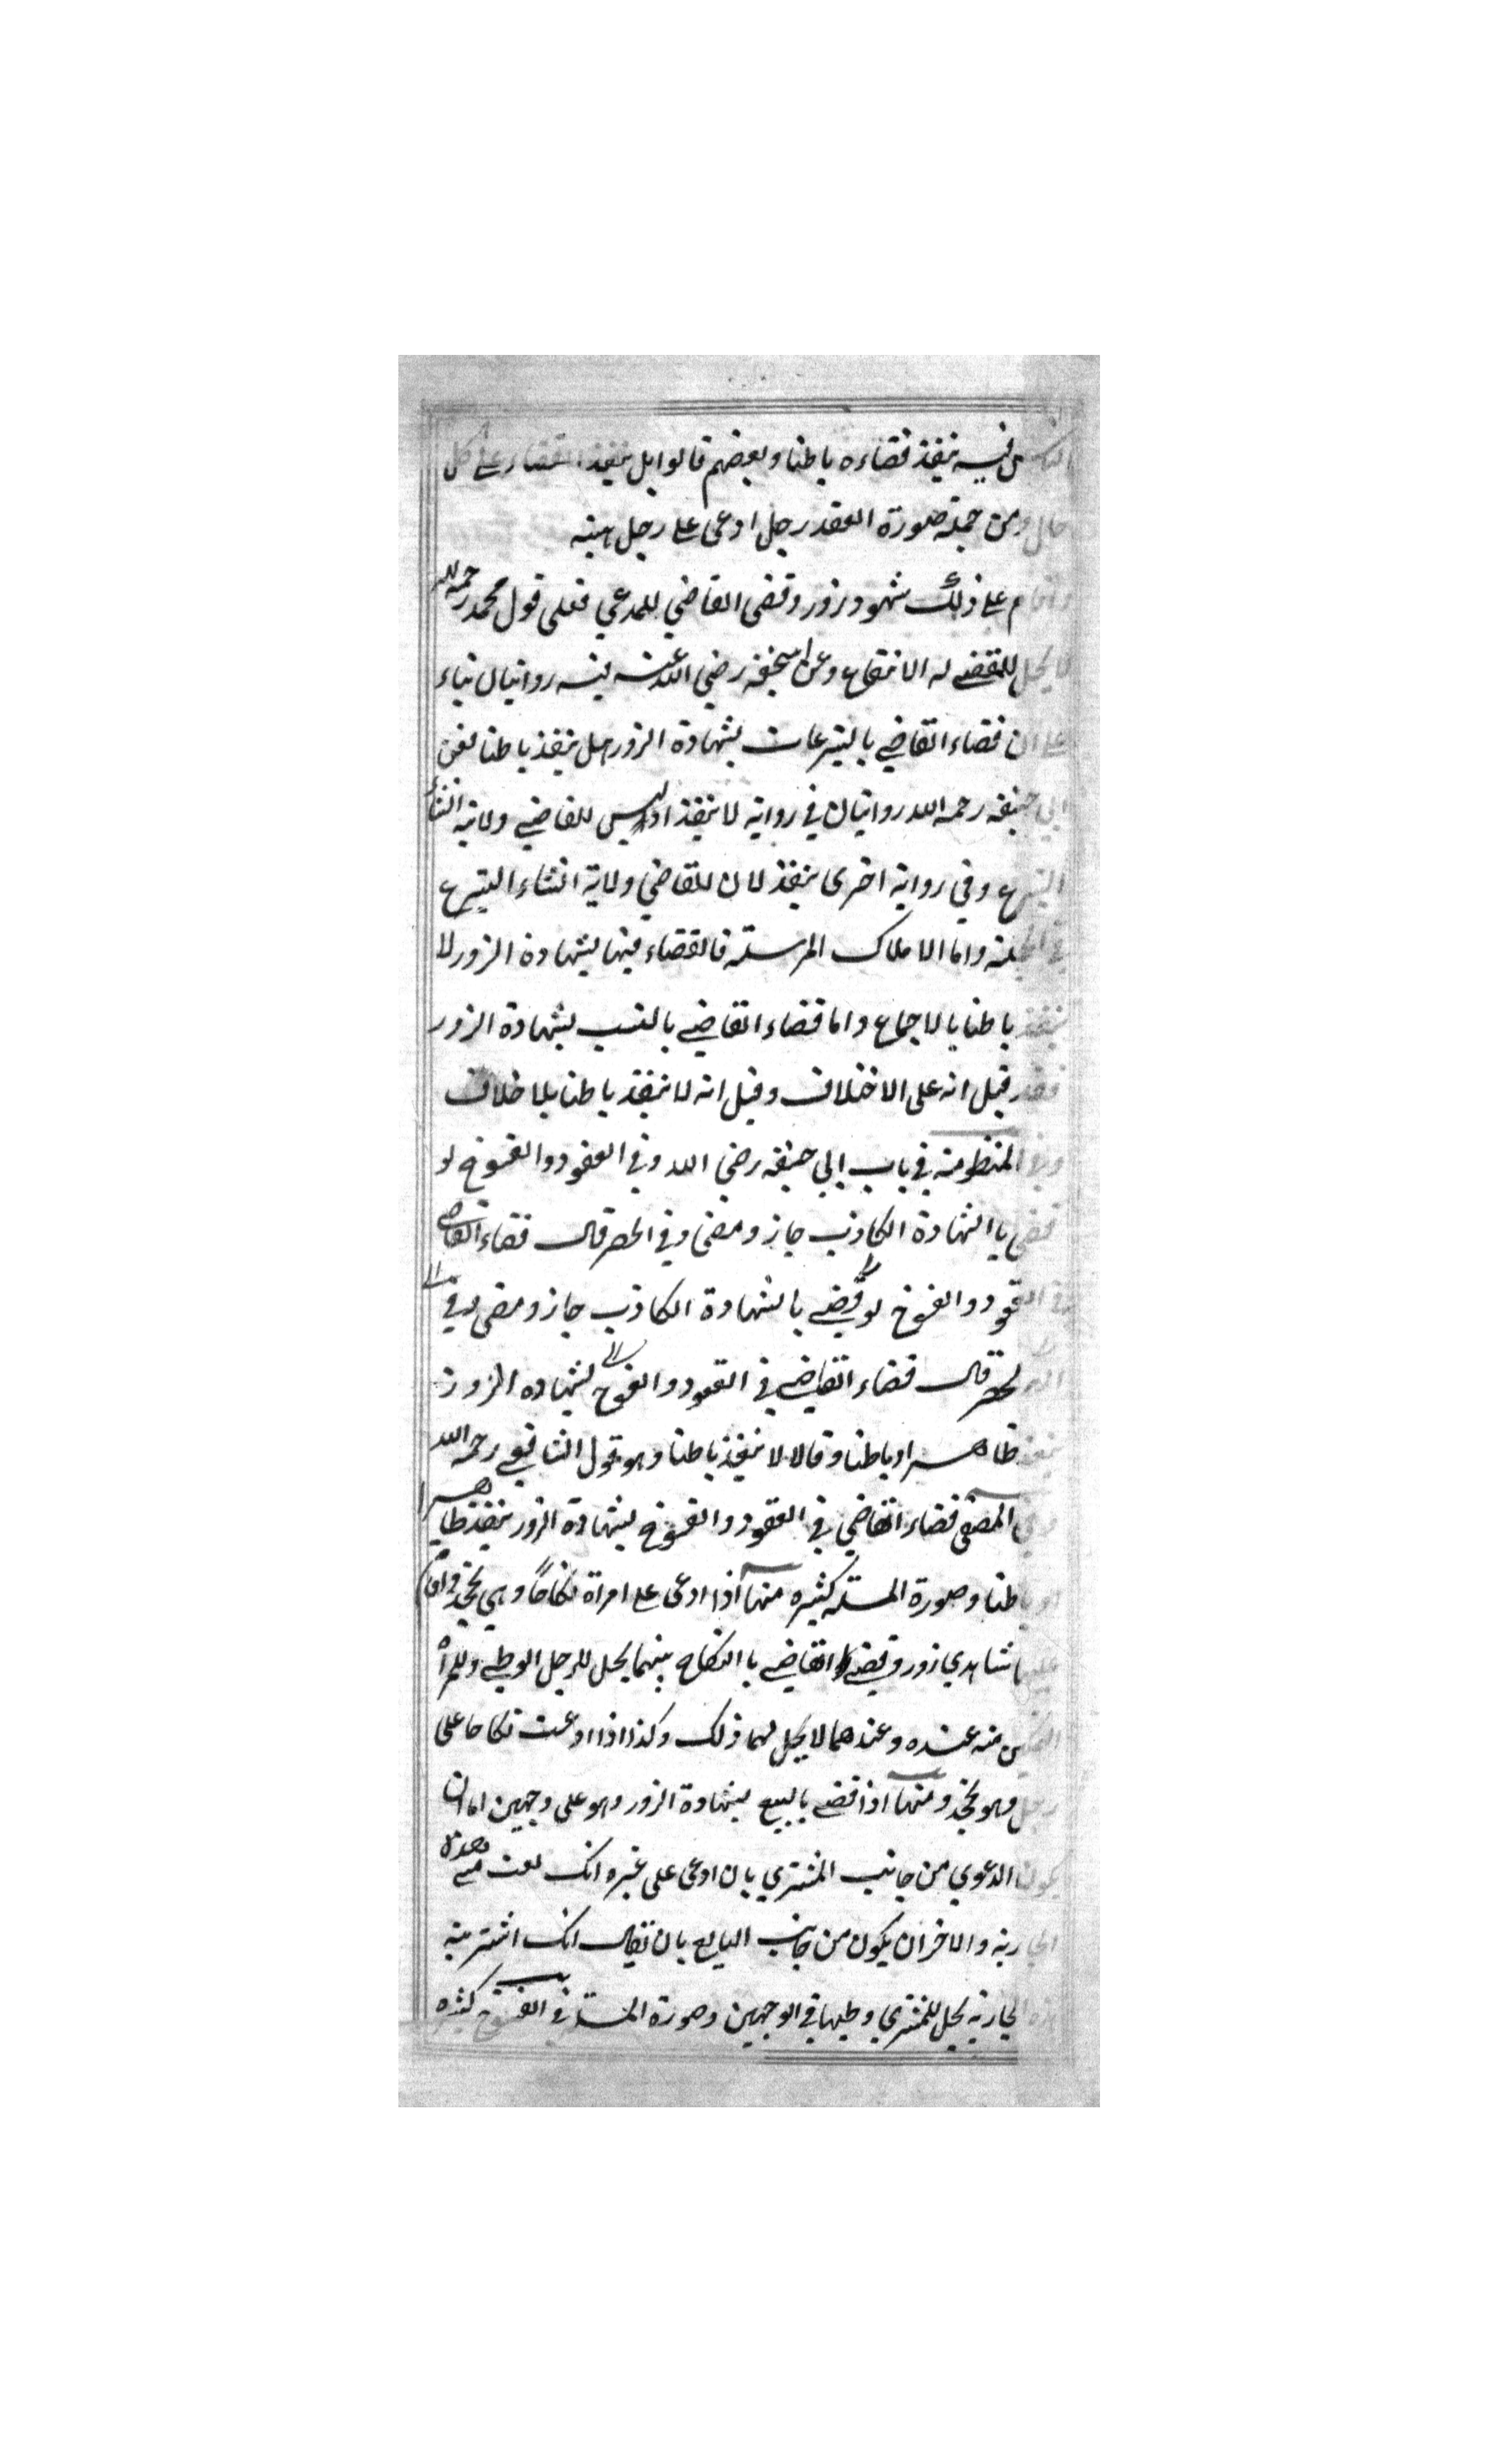 الناس فيه ينفذ قضاءه باطنا وبعضهم قالوا بل ينفذ القضاء على كل
حال ومن جملة صورة العقد رجل ادعى على رجل هبته
واقام على ذلك شهود زور وقضى القاضي للمدعي فعلى قول محمد رحمه الله
لا يحل للمقضے له الانتفاع وعن ابيحنيفة رضي الله عنه فيه روايتان بناء
على ان قضاء القاضي بالتبرعات بشهادة الزور هل ينفذ باطنا فعن
ابي حنيفة رحمه الله روايتان في رواية لا ينفذ اذ ليس للقاضي ولاية انشاء
التبرع وفي رواية اخرى ينفذ لان للقاضي ولاية انشاء التبرع
في الجملة واما الاملاك المرسلة فالقضاء فيها بشهادة الزور لا
ينفذ باطنا بالاجماع واما قضاء القاضي بالنسب بشهادة الزور
فقد قيل انه على الاختلاف وقيل انه لا ينفذ باطنا بلا خلاف
وفي المنظومة في باب ابي حنيفة رضي الله وفي العقود والفسوخ لو
قضى با الشهادة الكاذب جاز ومضى وفي الحصر قال قضاء القاضي
في العقود والفسوخ لو قضے بالشهادة الكاذب جاز ومضى وفي
الحصر قال قضاء القاضي في العقود والفسوخ بشهاده الزور
ينفذ ظاهرا وباطنا وقالا لا ينفذ باطنا وهو قول الشافعي رحمه الله
وفي المصفى قضاء القاضي في العقود والفسوخ بشهادة الزور ينفذ ظاهرا
او باطنا وصورة المسئلة كثيره منها اذا ادعى على امراة نكاحًا وهي تجحد واقام
عليها شاهدي زور وقضے القاضي با النكاح بينهما يحل للرجل الوطي وللمرأة
التمكين منه عنده وعندهما لا يحل لهما ذلك وكذا اذا ادعت نكاحا على
رجل وهو يجحد ومنها اذا قضے بالبيع بشهادة الزور وهو على وجهين اما ان
يكون الدعوي من جانب المشتري بان ادعى على غيره انك بعت مني هذه
الجارية والاخر ان يكون من جانب البايع بان يقال انك اشتريته
هذه الجارية يحل للمشتري وطيها في الوجهين وصورة المسئلة في الفسوخ كثيره